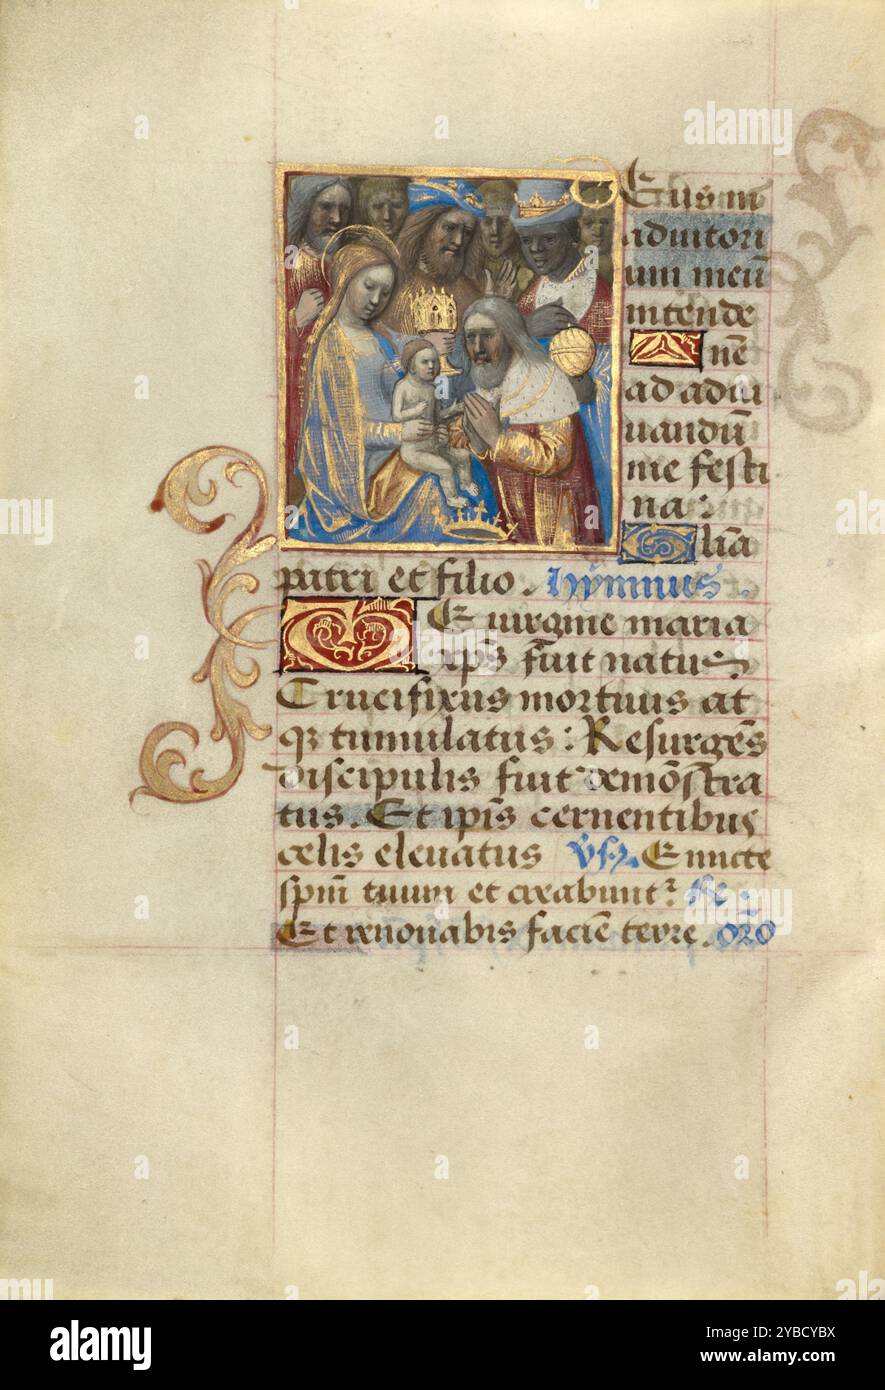 Eus in
adiutori
um meū
intende
nē
ad adiu
uandū
me festi
na.
lia
patri et filio. hymnus.
E uirgine maria
xp̄s fuit natus
Crucifixus mortuus at
qꝫ tumulatus: Resurgēs
discipulis fuit demōstra
tus. Et ipīs cernentibus
celis eleuatus Emicte
spm̄ tuum et creabunt
Et renouabis faciē terre. orō
alamy
Image ID: 2YBCYBX
www.alamy.com